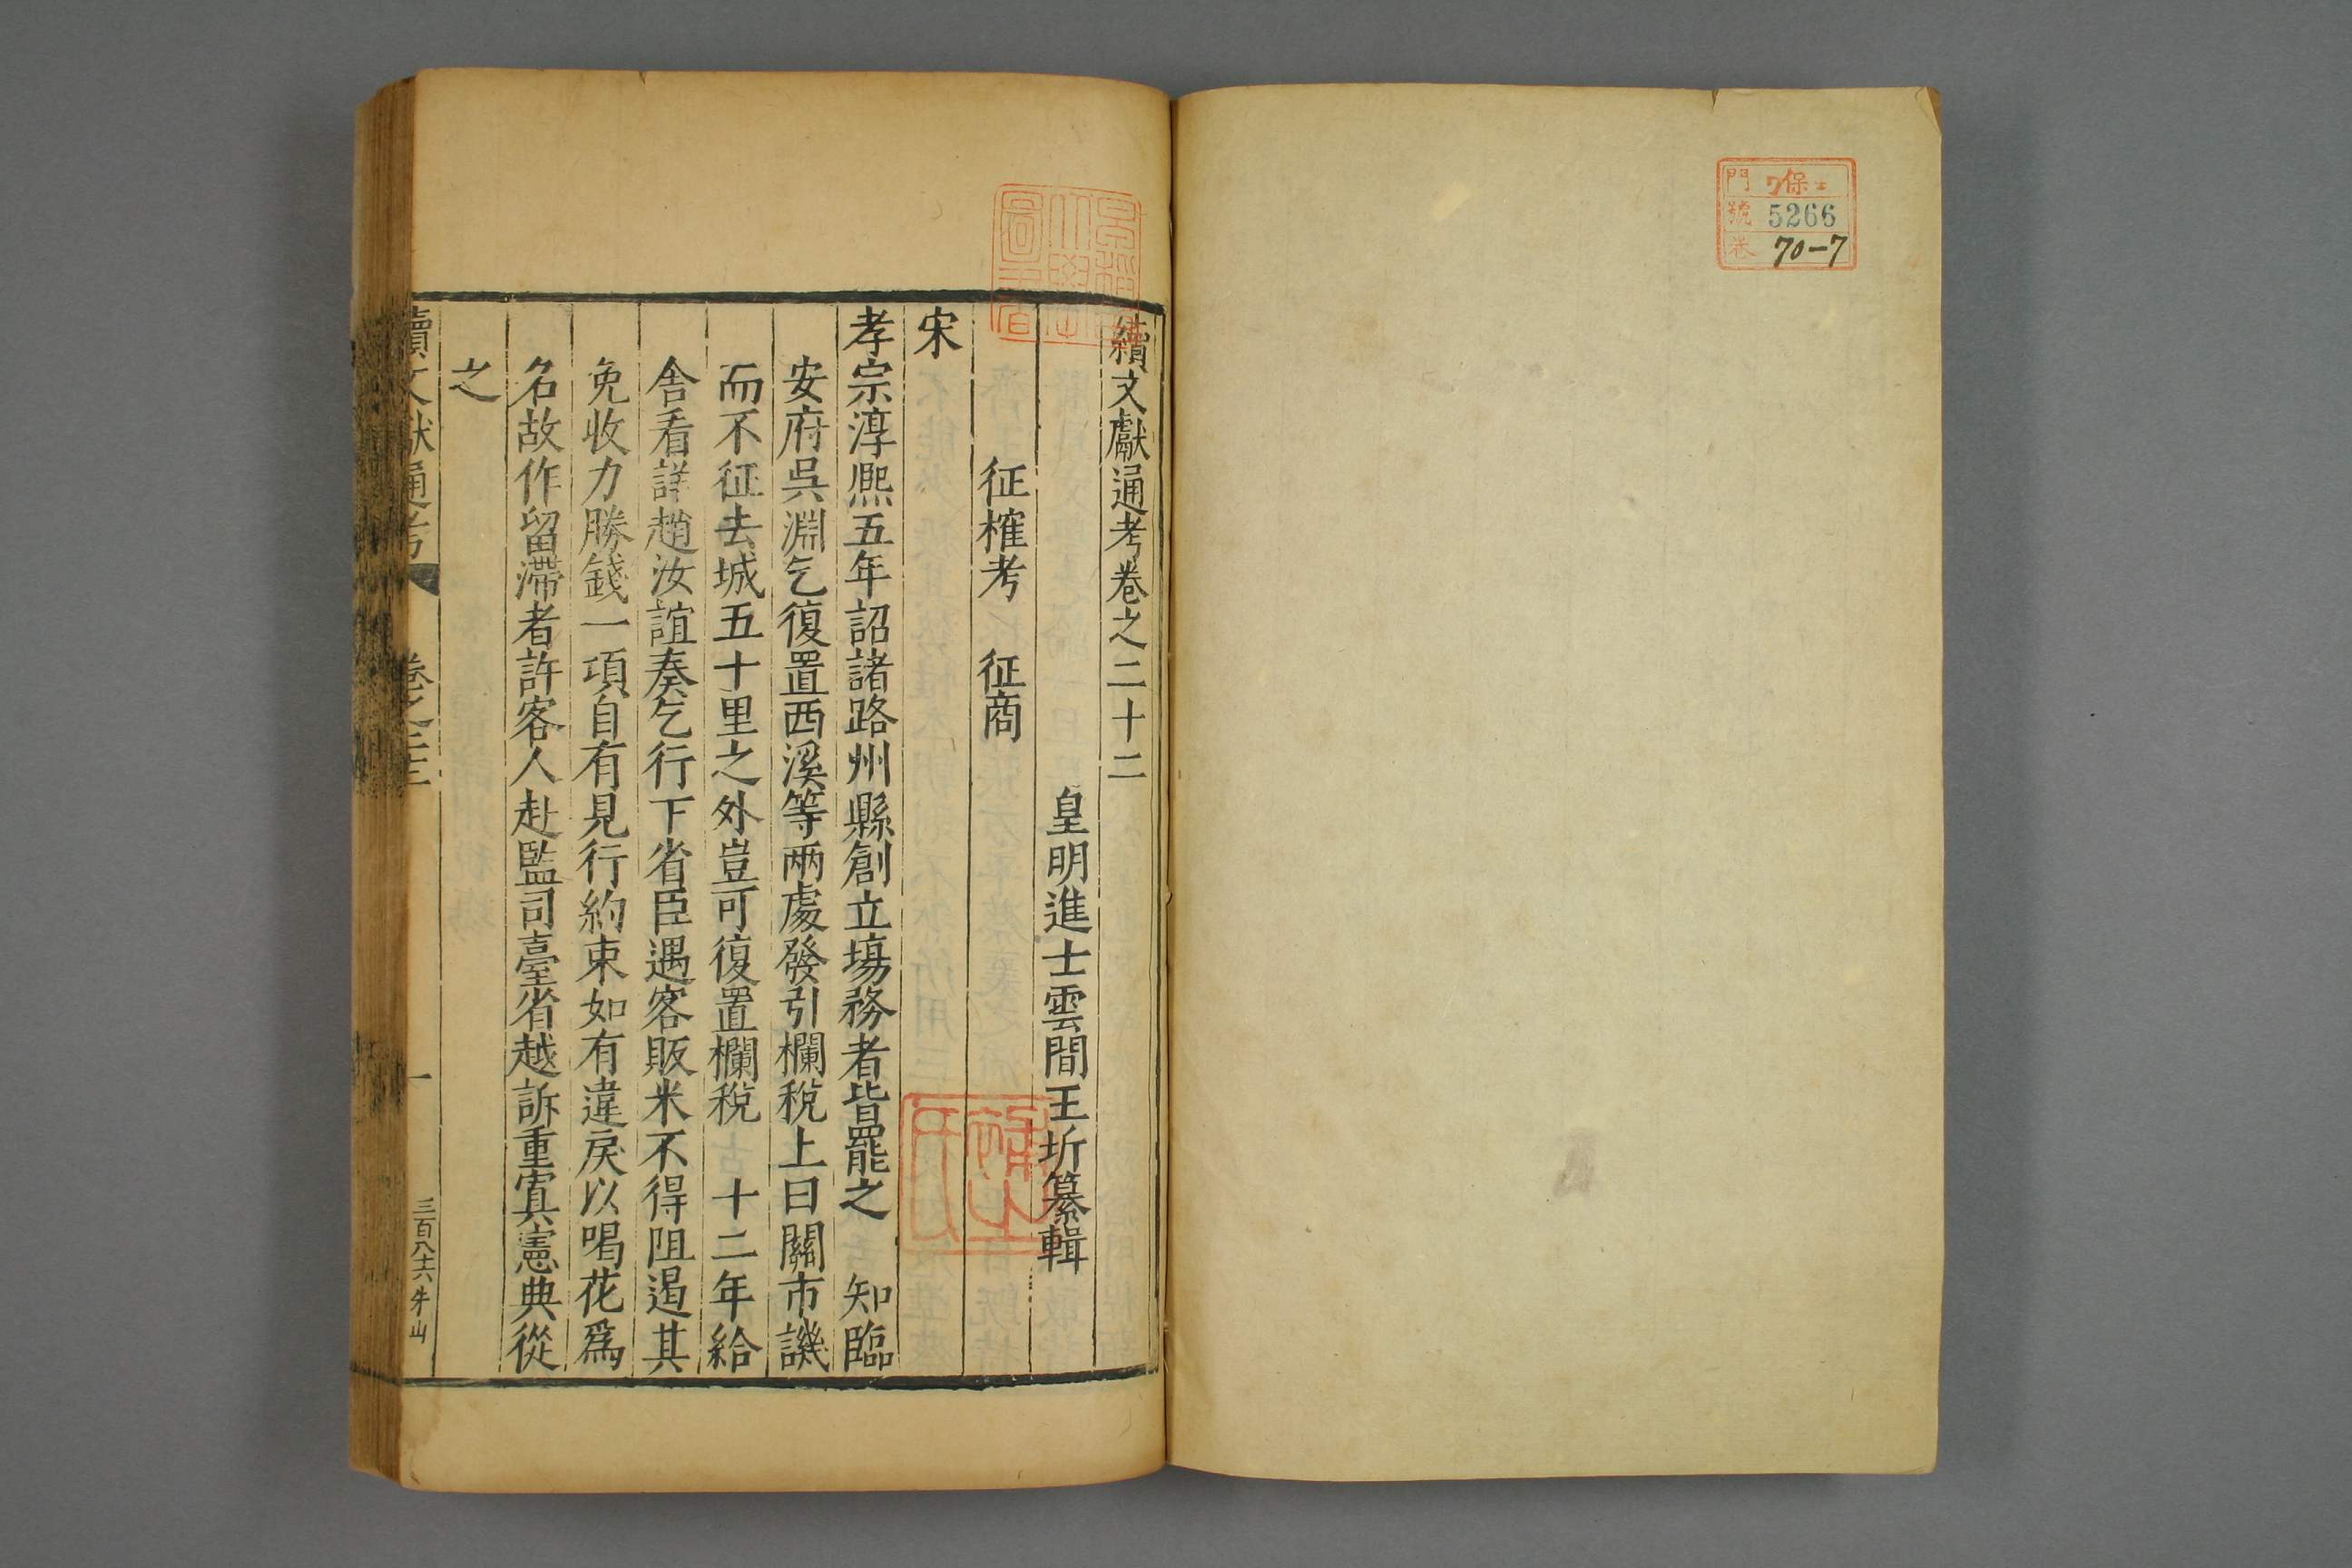 門 ワ保士
號 5266
卷 70-7
續文獻通考卷之二十二
皇明進士雲間王圻纂輯
征榷考 征商
宋
孝宗淳熈五年詔諸路州縣創立塲務者皆罷之 知臨
安府吳淵乞復置西溪等兩處發引欄稅上曰關市譏
而不征去城五十里之外豈可復置欄稅 十二年給
舍看詳趙汝誼奏乞行下省臣遇客販米不得阻遏其
免收力勝錢一項自有見行約束如有違戾以喝花爲
名故作留滯者許客人赴監司臺省越訴重寘憲典從
之
續文獻通考 卷之二十二 一 三百八十六 牛山